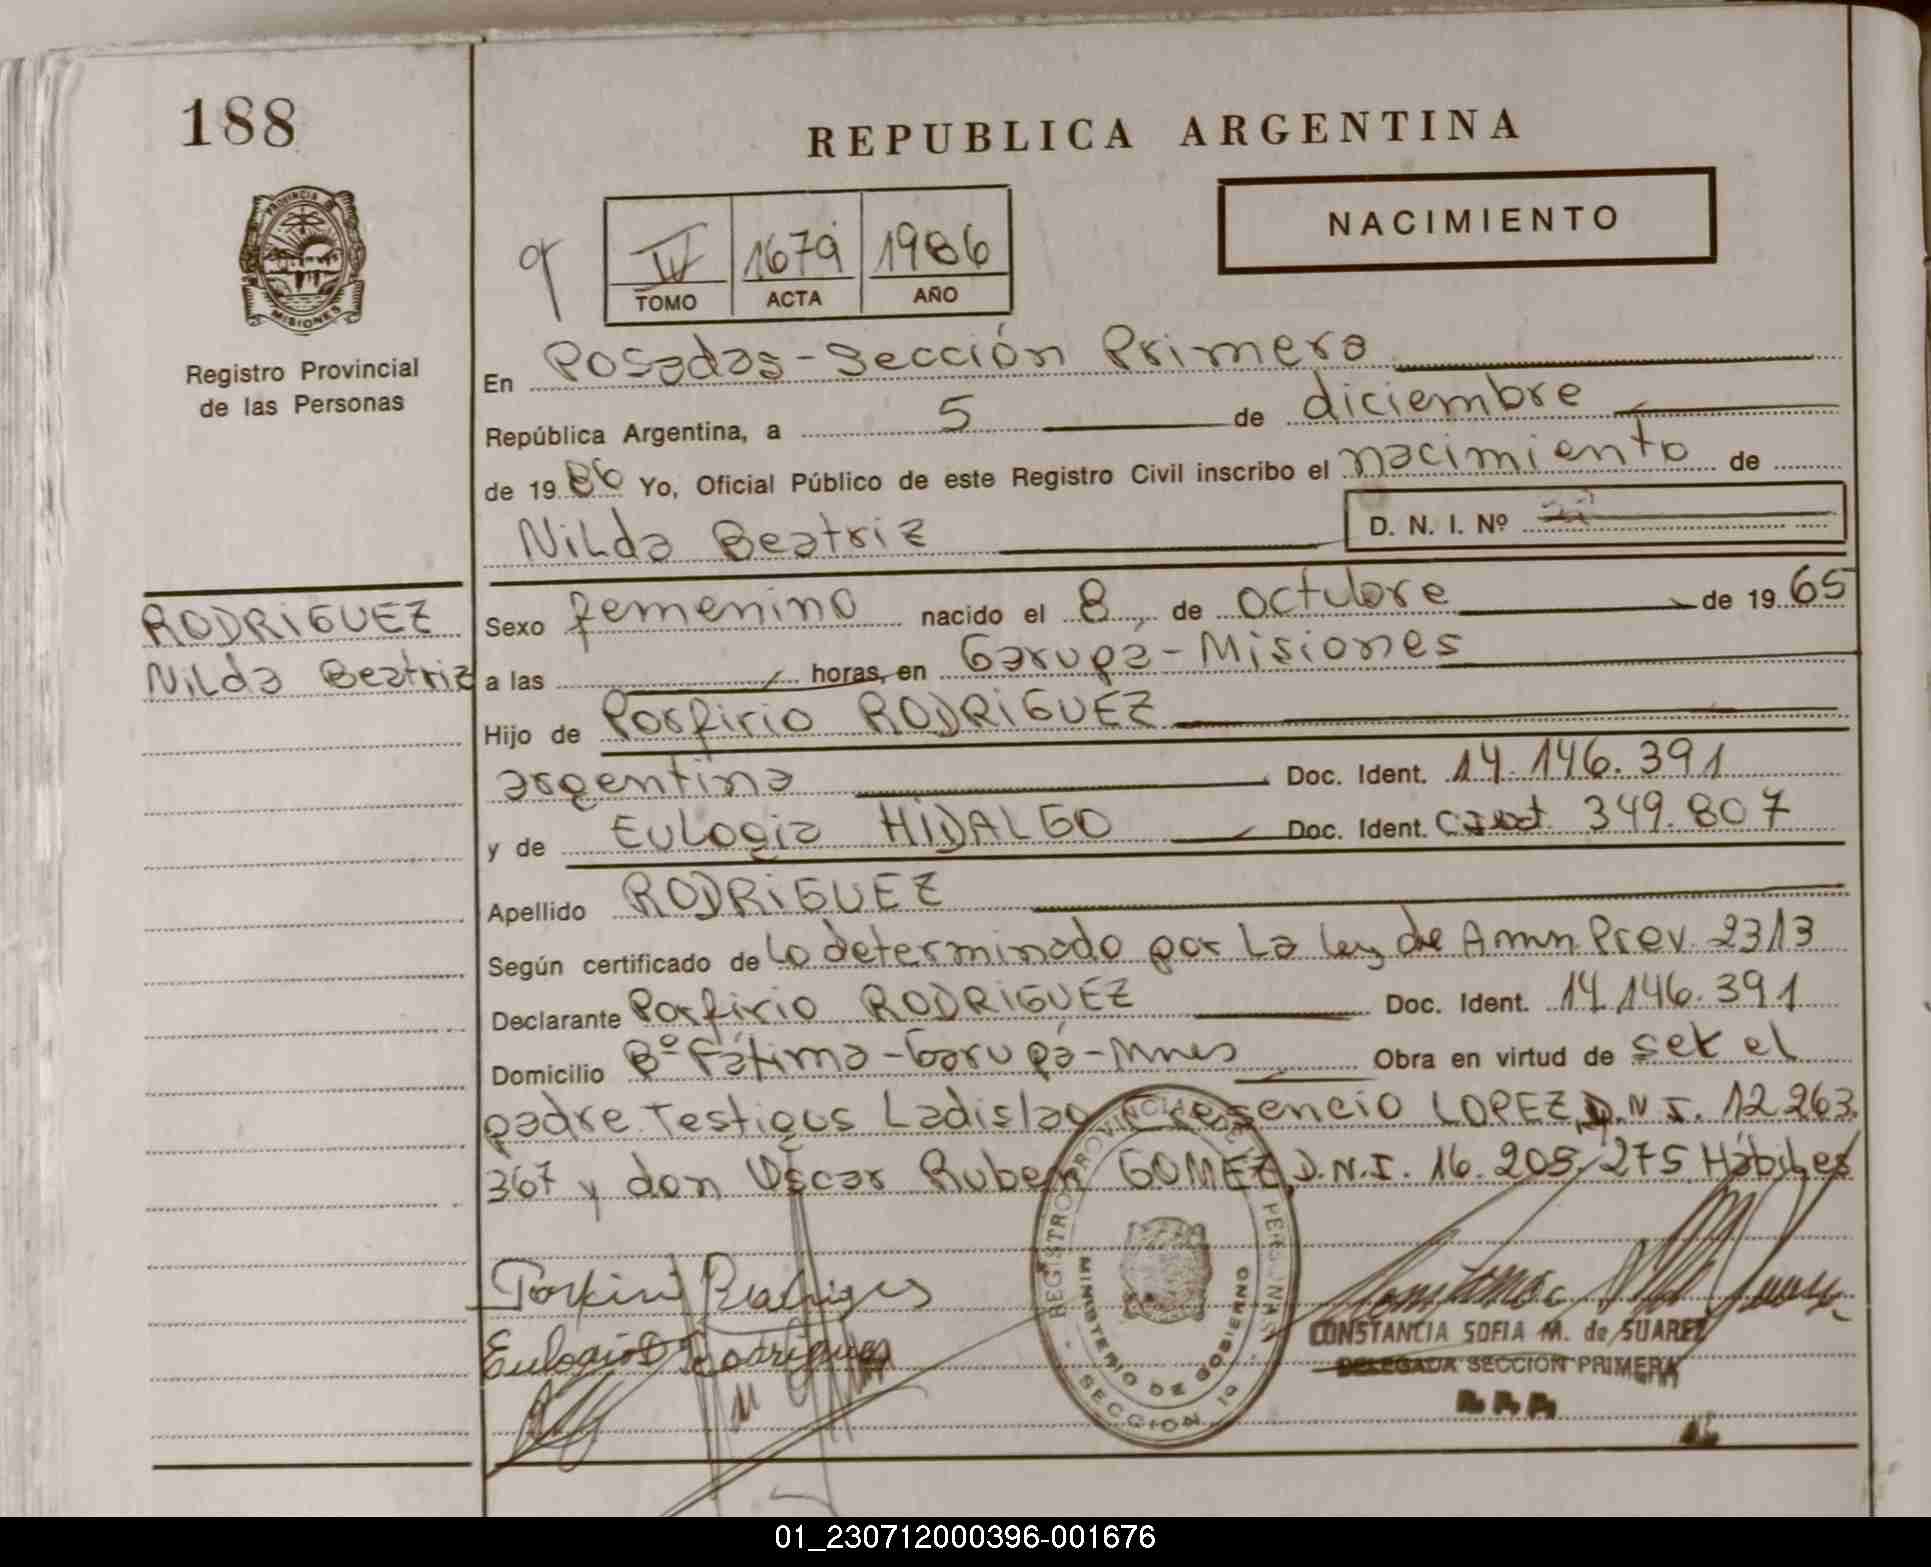 188
REPUBLICA ARGENTINA
NACIMIENTO
IV 1679 1986
TOMO ACTA AÑO
PROVINCIA DE
MISIONES
Registro Provincial
de las Personas
En Posadas - Sección Primera
República Argentina, a 5 de diciembre
de 1986 Yo, Oficial Público de este Registro Civil inscribo el nacimiento de
Nilda Beatriz D. N. I. Nº
RODRIGUEZ
Nilda Beatriz
Sexo femenino nacido el 8 de octubre de 1965
a las horas, en Garupá - Misiones
Hijo de Porfirio RODRIGUEZ
argentina Doc. Ident. 14.146.391
y de Eulogia HIDALGO Doc. Ident. 349.807
Apellido RODRIGUEZ
Según certificado de lo determinado por la ley de Amn. Prov. 2313
Declarante Porfirio RODRIGUEZ Doc. Ident. 14.146.391
Domicilio Bº Fátima - Garupá - Mnes Obra en virtud de ser el
padre. Testigos Ladislao Cresencio LOPEZ, D.N.I. 12.263.
367 y don Oscar Ruben GOMEZ, D.N.I. 16.205.275 Hábiles
REGISTRO PROVINCIAL DE LAS PERSONAS
MINISTERIO DE GOBIERNO
- SECCION 1ª -
Porfirio Rodrigues
CONSTANCIA SOFIA M. de SUAREZ
DELEGADA SECCION PRIMERA
R. P. P.
01_230712000396-001676